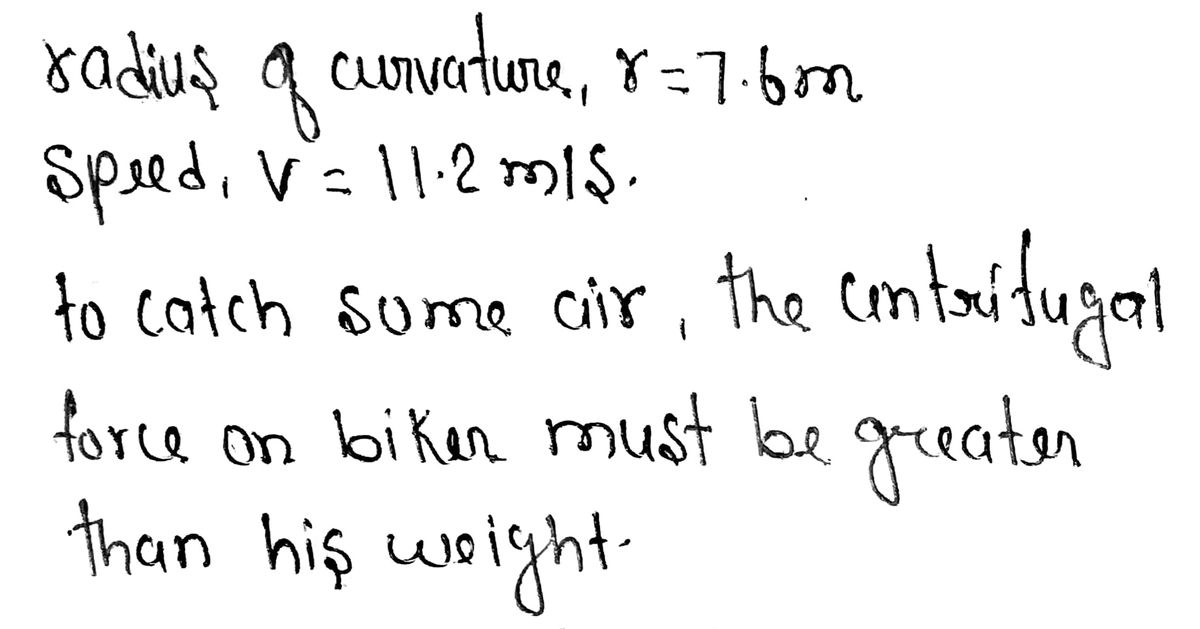 radius of curvature, r = 7.6m
Speed, V = 11.2 m/s.
to catch some air, the centrifugal
force on biker must be greater
than his weight.